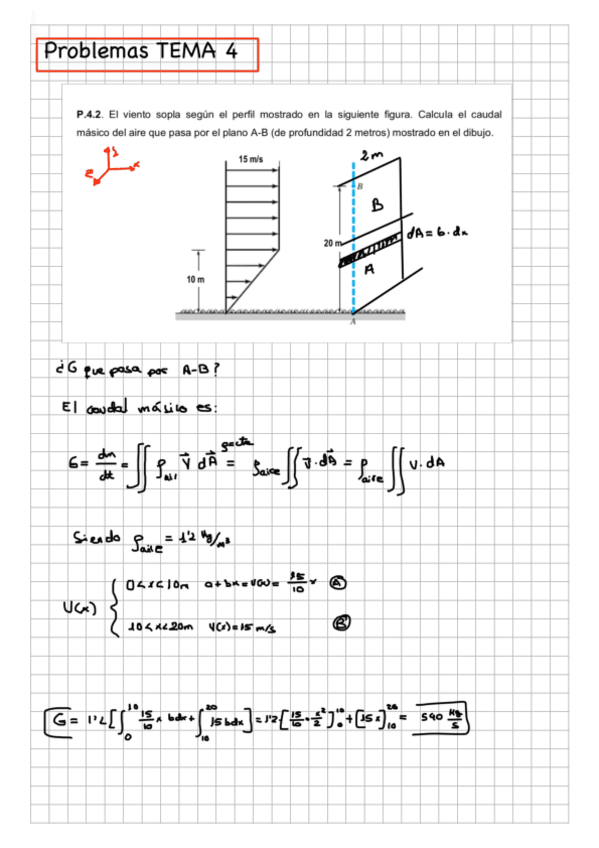 Problemas TEMA 4
P.4.2. El viento sopla según el perfil mostrado en la siguiente figura. Calcula el caudal
másico del aire que pasa por el plano A-B (de profundidad 2 metros) mostrado en el dibujo.
15 m/s
2m
B
B
20 m
dA = b·dx
A
10 m
A
¿G que pasa por A-B?
El caudal másico es:
G = dm/dt = ∬ ρair V⃗ dA⃗ = ρaire ∬ v⃗·dA⃗ = ρaire ∬ V·dA
Siendo ρaire = 1'2 Kg/m³
V(x) { 0<x<10m a+bx=V(x)= 15/10 x Ⓐ
10<x<20m V(x)=15 m/s Ⓑ
G = 1'2[∫₀¹⁰ 15/10 x bdx + ∫₁₀²⁰ 15bdx] = 1'2·[15/10·x²/2]₀¹⁰ + [15x]₁₀²⁰ = 540 Kg/s